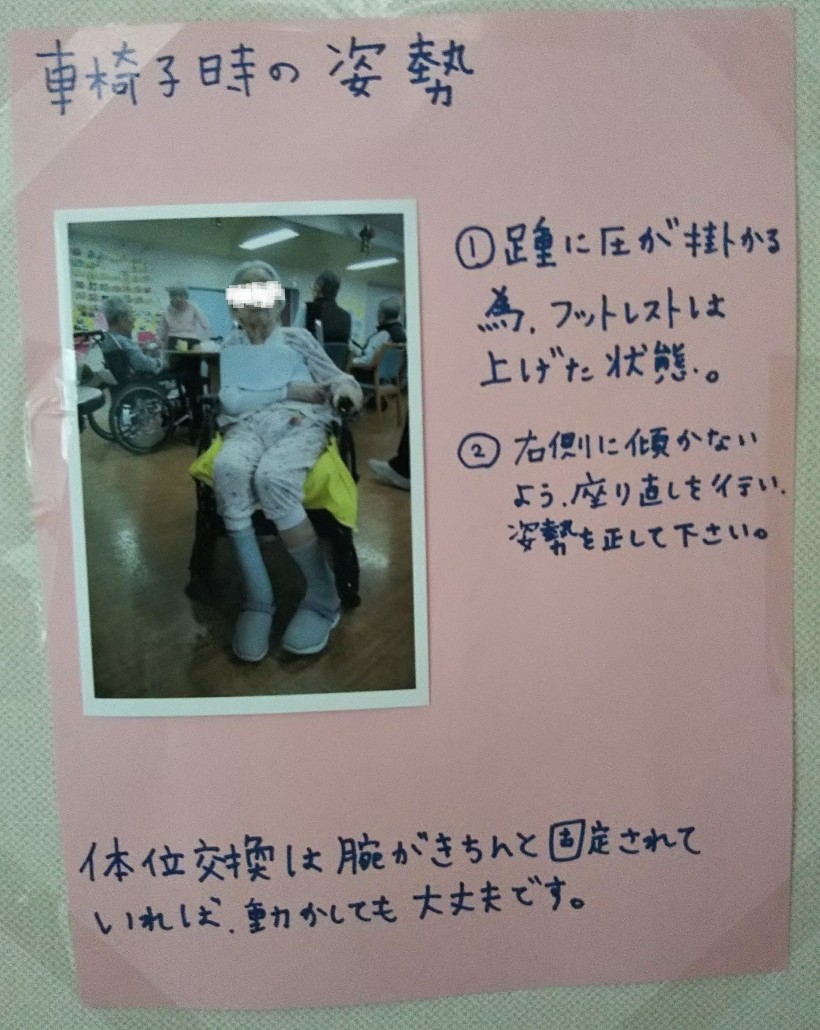 車椅子時の姿勢
①踵に圧が掛かる
為、フットレストは
上げた状態。
②右側に傾かない
よう、座り直しを行い、
姿勢を正して下さい。
体位交換は腕がきちんと固定されて
いれば、動かしても大丈夫です。